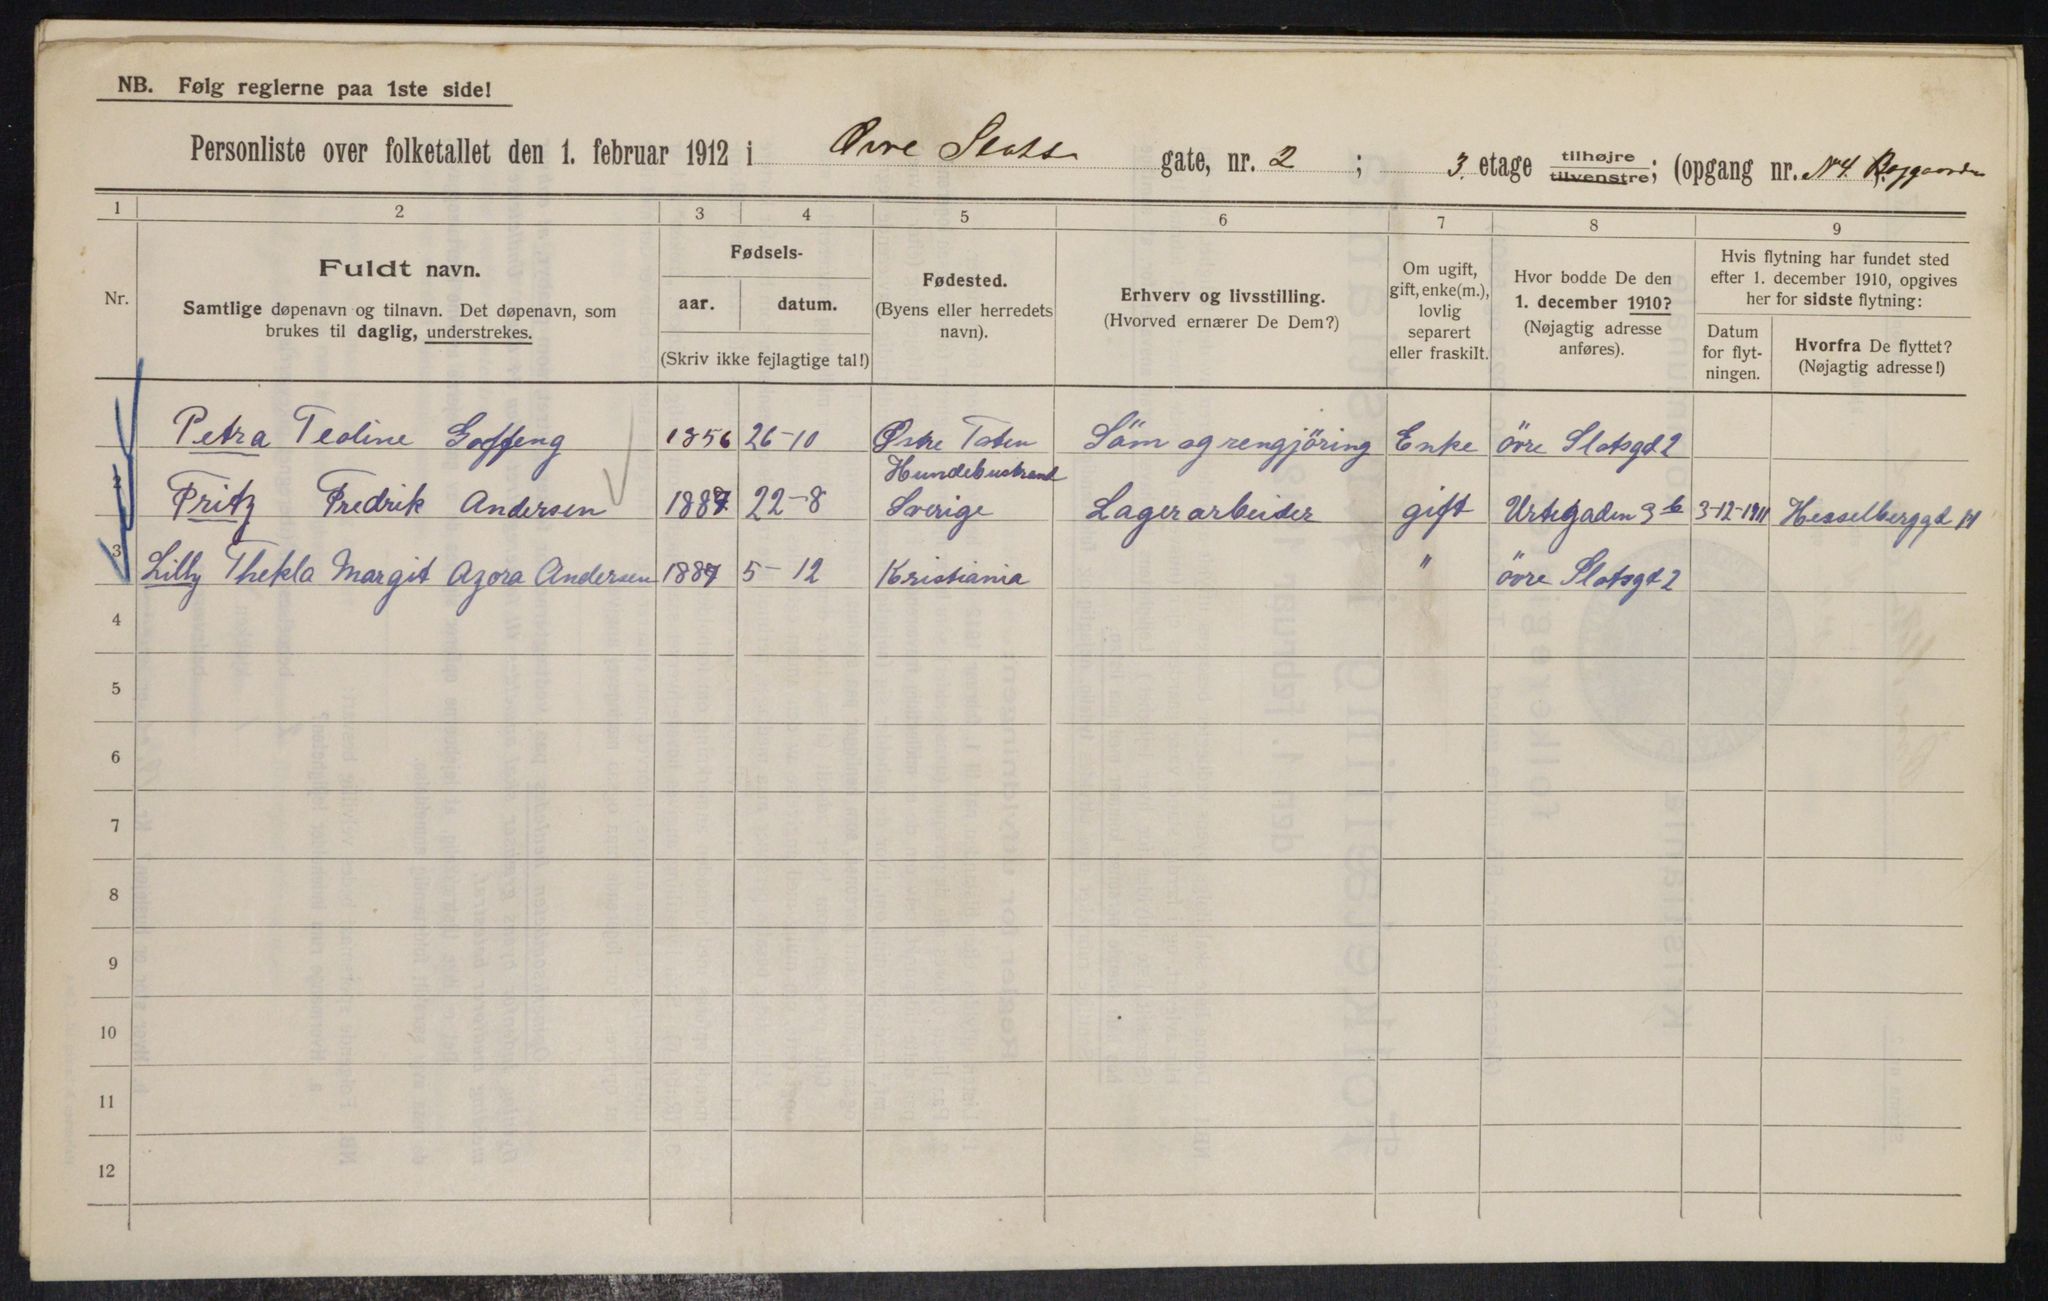 NB. Følg reglerne paa 1ste side!
Personliste over folketallet den 1. februar 1912 i Øvre Slots gate, nr. 2 ; 3. etage tilhøjre tilvenstre; (opgang nr. N 4.
1 2 3 4 5 6 7 8 9
Nr.
Fuldt navn.
Samtlige døpenavn og tilnavn. Det døpenavn, som
brukes til daglig, understrekes.
Fødsels-
aar. datum.
(Skriv ikke fejlagtige tal!)
Fødested.
(Byens eller herredets
navn).
Erhverv og livsstilling.
(Hvorved ernærer De Dem?)
Om ugift,
gift, enke(m.),
lovlig
separert
eller fraskilt.
Hvor bodde De den
1. december 1910?
(Nøjagtig adresse
anføres).
Hvis flytning har fundet sted
efter 1. december 1910, opgives
her for sidste flytning:
Datum
for flyt-
ningen.
Hvorfra De flyttet?
(Nøjagtig adresse!)
Petra Teoline Goffeng 1856 26-10 Østre Toten Söm og rengjöring Enke övre Slotsgd 2
2 Fritz Fredrik Andersen 1887 22-8 Sverige Lagerarbeider gift Urtegaden 3 b 3-12-1911 Hesselberggd
3 Lilly Thekla Margit Agora Andersen 1887 5-12 Kristiania " övre Slotsgd 2
4
5
6
7
8
9
10
11
12